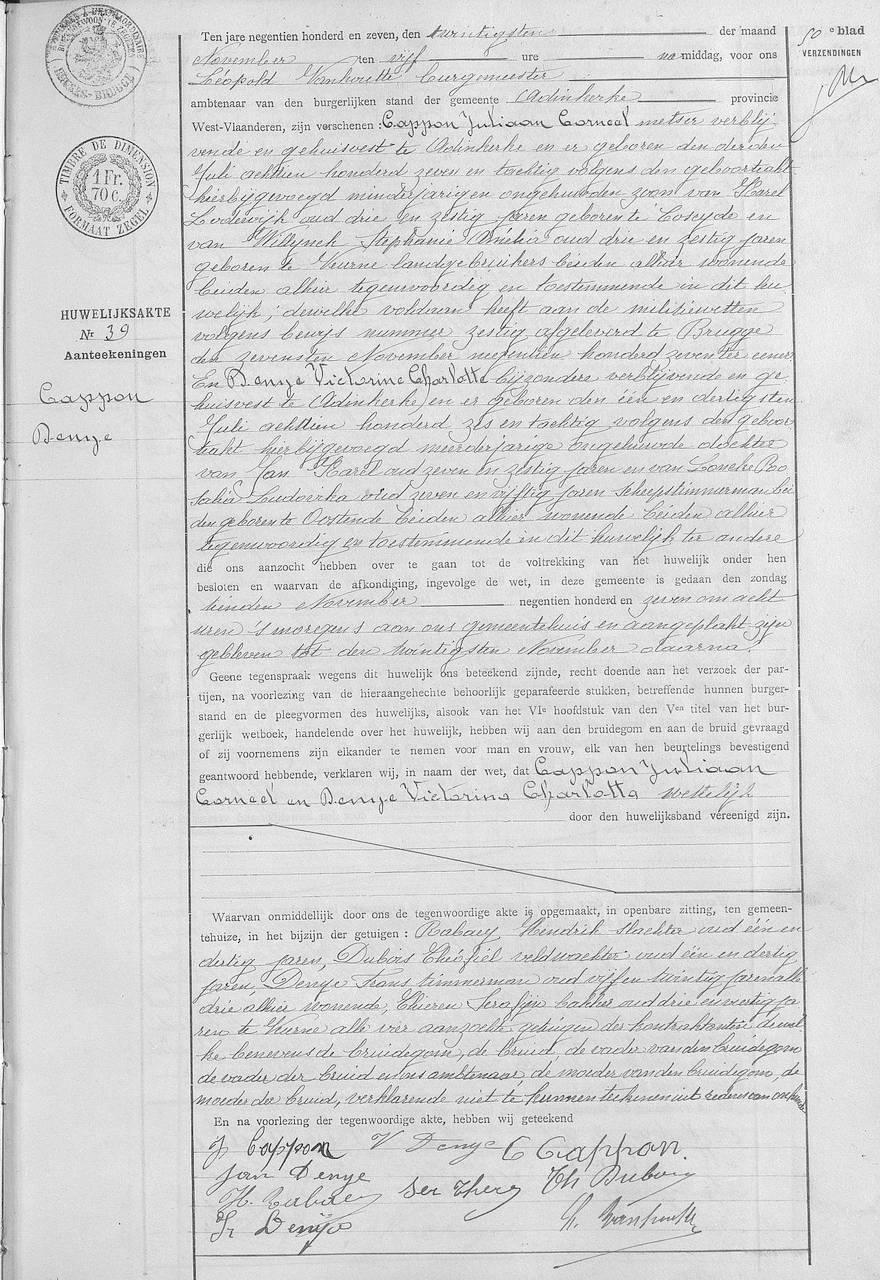 TIMBRE DE DIMENSION
1 Fr.
70 c.
FORMAAT ZEGEL
50e blad
VERZENDINGEN
HUWELIJKSAKTE
Nr 39
Aanteekeningen
Cappon
Denye
Ten jare negentien honderd en zeven, den twintigsten der maand
November ten vijf ure na middag, voor ons
Léopold Vanhoutte burgmeester
ambtenaar van den burgerlijken stand der gemeente (Adinkerke provincie
West-Vlaanderen, zijn verschenen : Cappon Juliaan Corneel metser verblij-
vende en gehuisvest te Adinkerke en er geboren den derden
Juli achttien honderd zeven en tachtig volgens den geboorteakt
hierbijgevoegd minderjarigen ongehuwden zoon van Karel
Lodewijk oud drie en zestig jaren geboren te Coxyde en
van Stephanie Amelia oud drie en zestig jaren
geboren te Veurne landgebruikers beiden alhier wonende
beiden alhier tegenwoordig en toestemmende in dit hu-
welijk; dewelke voldaan heeft aan de militiewetten
volgens bewijs nummer zestig afgeleverd te Brugge
den zevensten November negentien honderd zeven ter eener
En Denye Victorine Charlotte bijzondere verblijvende en ge-
huisvest te (Adinkerke) en er geboren den één en dertigsten
Juli achttien honderd zes en tachtig volgens den geboor-
teakt hierbijgevoegd meerderjarige ongehuwde dochter
van Jan Karel oud zeven en zestig jaren en van Loncke Ro-
salia Ludovika oud zeven en vijftig jaren scheepstimmerman bei-
den geboren te Oostende beiden alhier wonende beiden alhier
tegenwoordig en toestemmende in dit huwelijk ter andere
die ons aanzocht hebben over te gaan tot de voltrekking van het huwelijk onder hen
besloten en waarvan de afkondiging, ingevolge de wet, in deze gemeente is gedaan den zondag
tienden November negentien honderd en zeven om acht
uren 's morgens aan ons gemeentehuis en aangeplakt zijn
gebleven tot den twintigsten November daarna.
Geene tegenspraak wegens dit huwelijk ons beteekend zijnde, recht doende aan het verzoek der par-
tijen, na voorlezing van de hieraangehechte behoorlijk geparafeerde stukken, betreffende hunnen burger-
stand en de pleegvormen des huwelijks, alsook van het VIe hoofdstuk van den Ven titel van het bur-
gerlijk wetboek, handelende over het huwelijk, hebben wij aan den bruidegom en aan de bruid gevraagd
of zij voornemens zijn elkander te nemen voor man en vrouw, elk van hen beurtelings bevestigend
geantwoord hebbende, verklaren wij, in naam der wet, dat Cappon Juliaan
Corneel en Denye Victorine Charlotte wettelijk
door den huwelijksband vereenigd zijn.
Waarvan onmiddellijk door ons de tegenwoordige akte is opgemaakt, in openbare zitting, ten gemeen-
tehuize, in het bijzijn der getuigen : Rabaey Hendrik slachter oud één en
dertig jaren, Dubois Théofiel veldwachter oud één en dertig
jaren, Denye Frans timmerman oud vijf en twintig jaren alle
drie alhier wonende, Thieren Serafijn bakker oud drie en veertig ja-
ren te Veurne alle vier aanzochte getuigen der kontraktanten dewel-
ke benevens de bruidegom, de bruid, de vader van den bruidegom
de vader der bruid en ons ambtenaar, de moeder van den bruidegom, de
moeder der bruid, verklarende niet te kunnen teekenen uit reden van
En na voorlezing der tegenwoordige akte, hebben wij geteekend
J Cappon V Denye C Cappon.
Jan Denye
H. Rabaey Ser Th Dubois
Fr Denye L. Vanhoutte